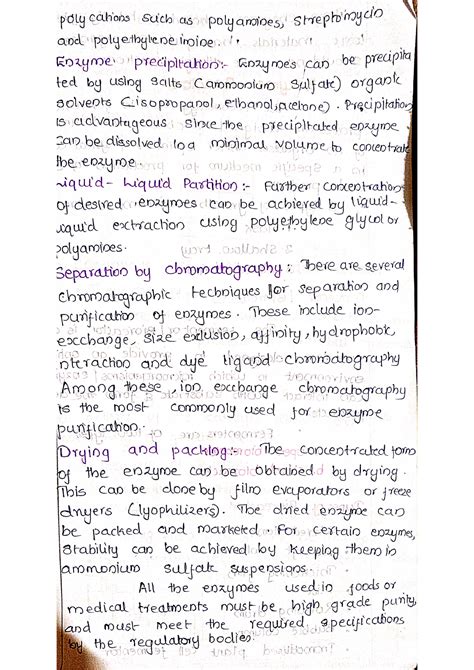 polycations such as polyamines, streptomycin
and polyethylene imine.
Enzyme precipitation:- Enzymes can be precipita
ted by using salts (ammonium sulfate) organic
solvents (isopropanol, ethanol, acetone). Precipitation
is advantageous since the precipitated enzyme
can be dissolved in a minimal volume to concentrate
the enzyme
Liquid- Liquid Partition:- Further concentration
of desired enzymes can be achieved by liquid-
liquid extraction using polyethylene glycol or
polyamines.
Separation by chromatography: There are several
chromatographic techniques for separation and
purification of enzymes. These include ion-
exchange, size exlusion, affinity, hydrophobic
interaction and dye ligand chromatography
Among these, ion exchange chromatography
is the most commonly used for enzyme
purification.
Drying and packing:- The concentrated form
of the enzyme can be obtained by drying.
This can be done by film evaporators or freeze
dryers (lyophilizers). The dried enzyme can
be packed and marketed. For certain enzymes,
stability can be achieved by keeping them in
ammonium sulfate suspensions.
All the enzymes used in foods or
medical treatments must be high grade purity,
and must meet the required specifications
by the regulatory bodies.